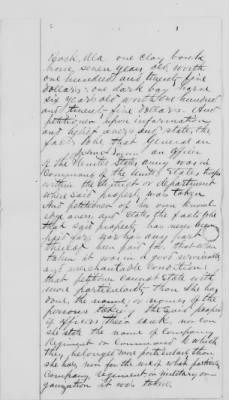 Rock, Ala one clay bank
horse seven years old worth
one hundred and twenty five
dollars: one dark bay horse
six years old worth one hundred
and twenty five dollars. And
petitioner upon information
and belief avers and states the
fact to be that General
an officer
of the United States army was in
Command of the United States troops
within the district or department
where said property was taken
And petitioner of her own knowl
edge avers and states the fact to be
that said property has never been
paid for, nor has any part
thereof been paid for, that when
taken it was in a good serviceable
and merchantable condition
that petitioner cannot state with
more particularity than she has
done, the name, or names of the
persons taking the said property
if officers their rank nor can
she state the name of Company
Regiment or Command to which
they belonged more particularly than
she has, nor for the use of what particular
Company regiment or military or-
ganization it was taken